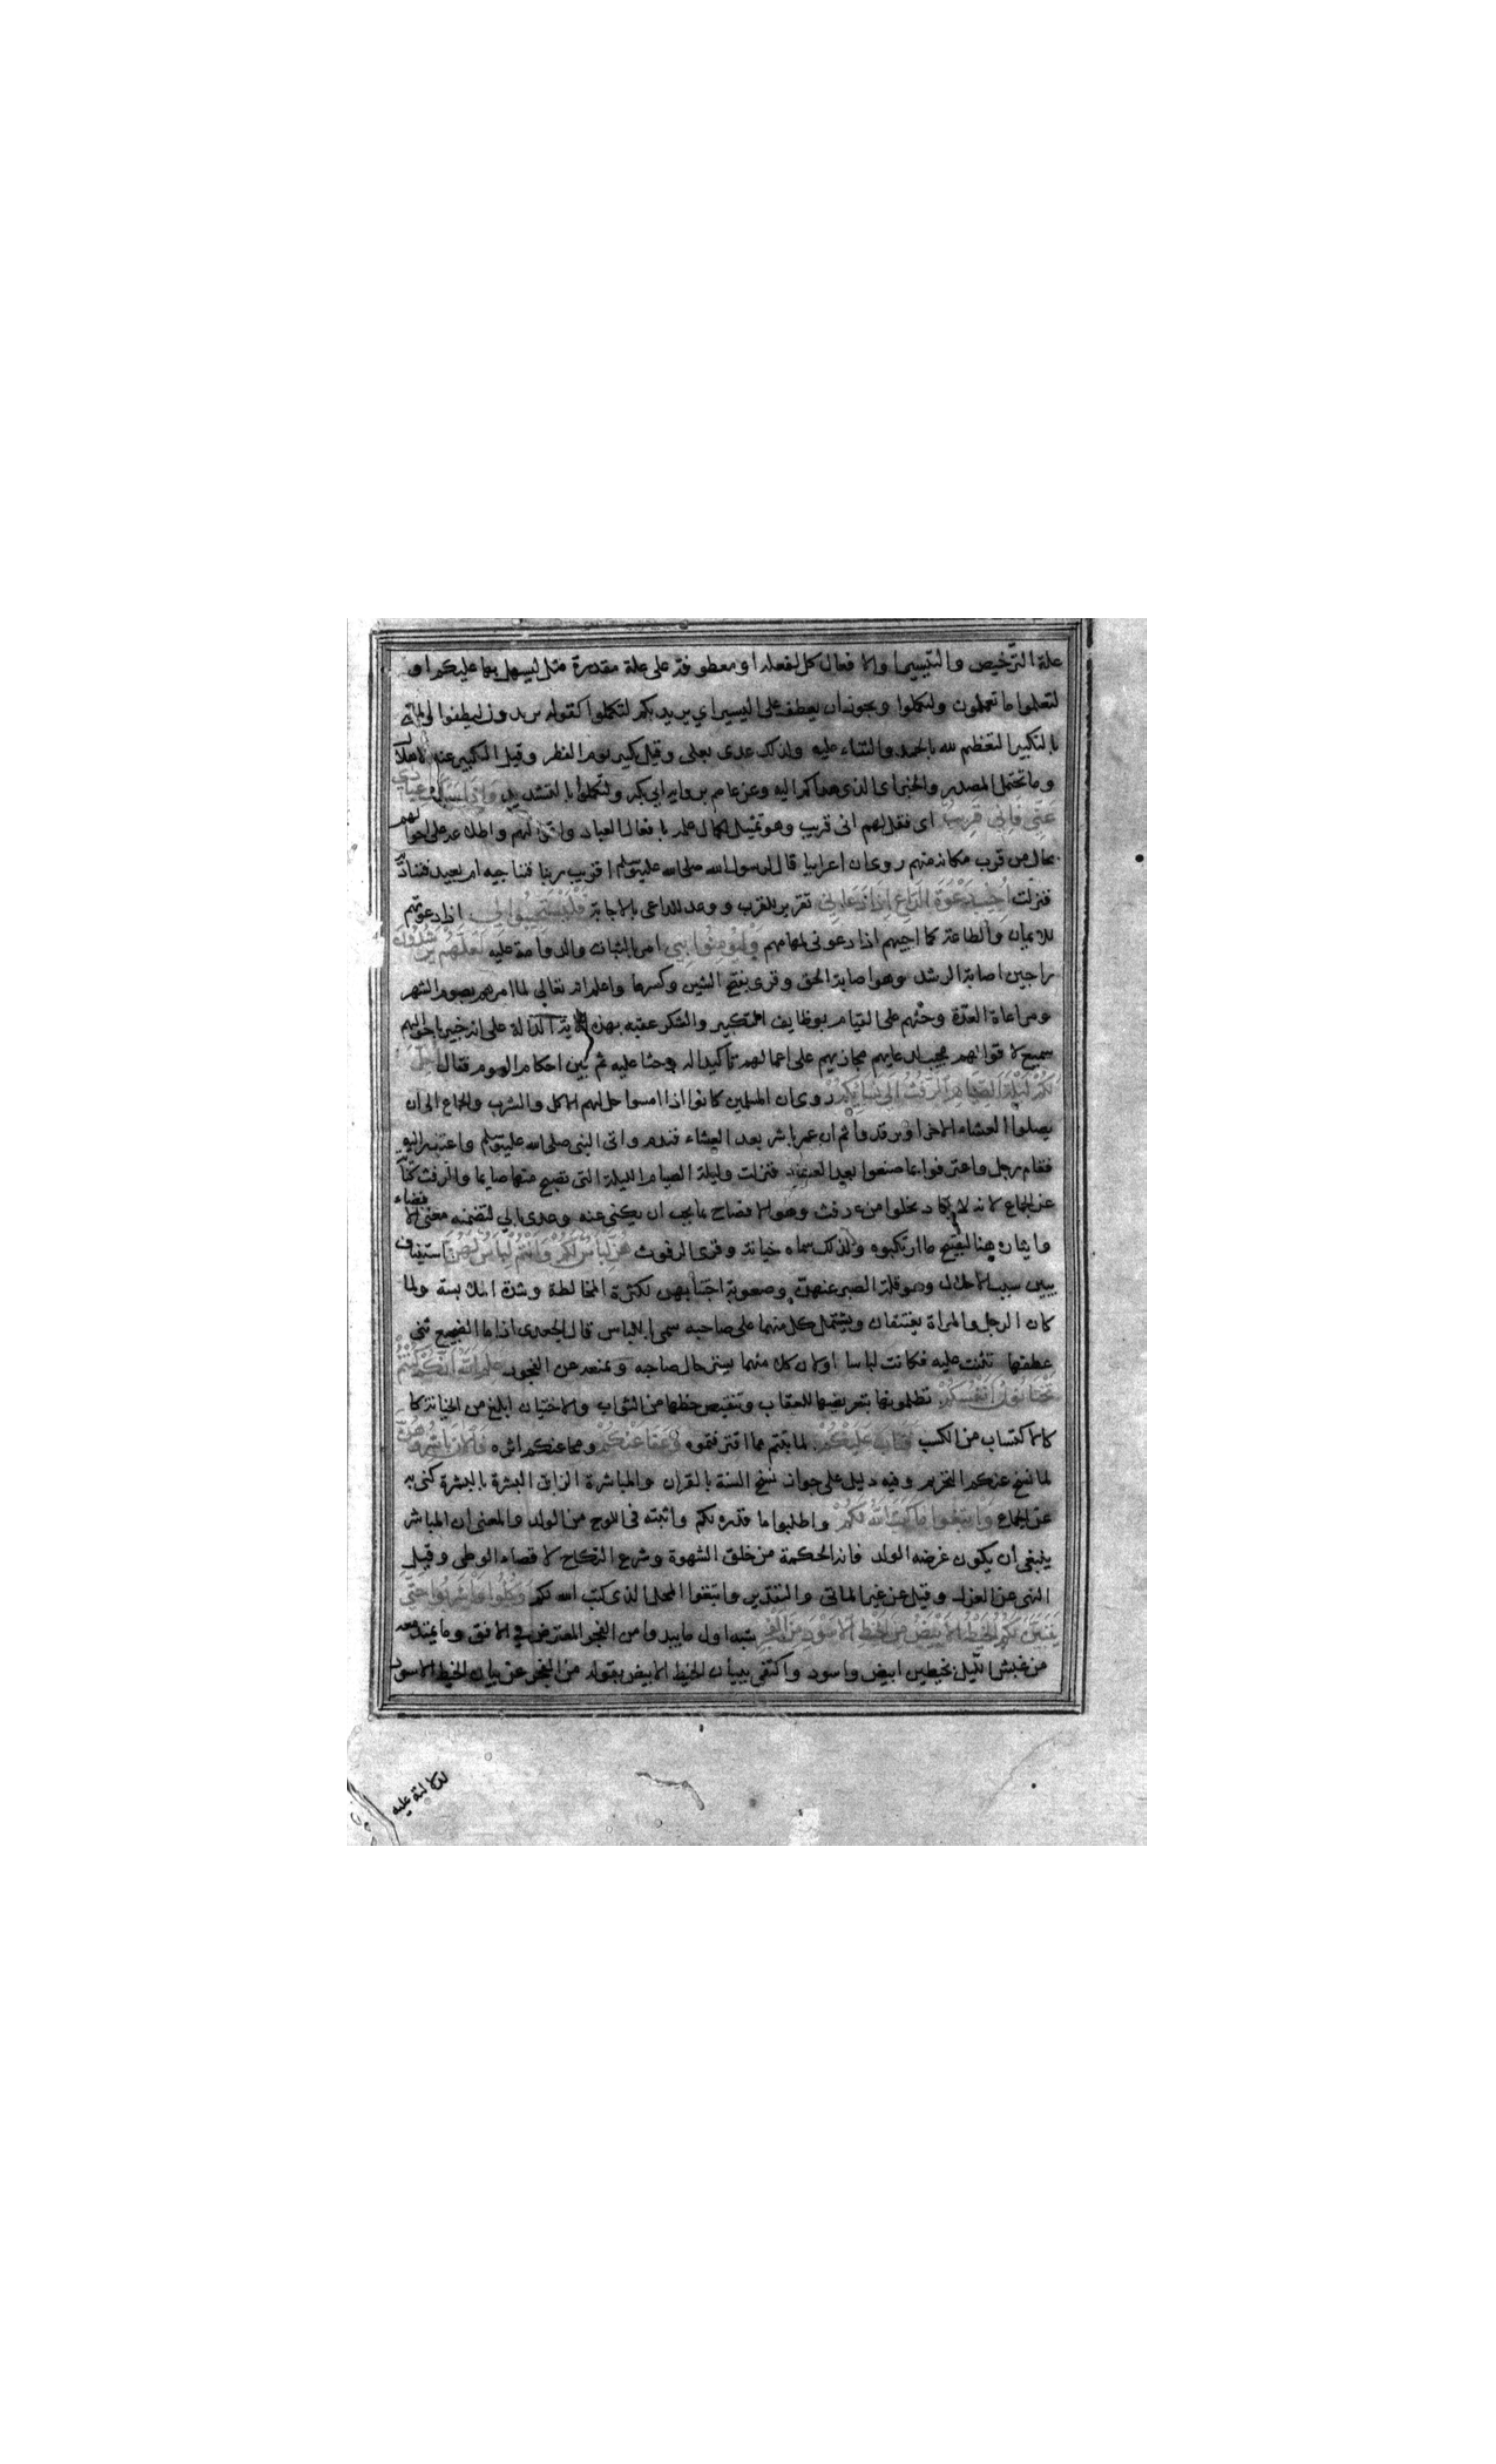 علة الترخيص والتيسير او الافعال كل لفعله او معطوفة على علة مقدرة مثل ليسهل بها عليكم او
لتعلموا ما تعملون ولتكملوا ويجوز ان يعطف على اليسير اي يريد بكم لتكملوا كقوله يريدون ليطفئوا
بالتكبير التعظيم لله بالحمد والثناء عليه ولذلك عدى بعلى وقيل تكبير يوم الفطر وقيل التكبير عند الاهلال
وما تحتمل المصدر والخبر اي الذي هداكم اليه وعن عاصم برواية ابي بكر ولتكملوا بالتشديد وَإِذَا سَأَلَكَ عِبَادِي
عَنِّي فَإِنِّي قَرِيبٌ اى فقل لهم انى قريب وهو تمثيل لكمال علمه بافعال العباد واقوالهم واطلاعه على احوالهم
بحال من قرب مكانه منهم روى ان اعرابيا قال لرسول الله صلى الله عليه وسلم اقريب ربنا فنناجيه ام بعيد فنناديه
فنزلت أُجِيبُ دَعْوَةَ الدَّاعِ إِذَا دَعَانِي تقرير للقرب ووعد للداعى بالاجابة فَلْيَسْتَجِيبُوا لِي اذا دعوتهم
للايمان والطاعة كما اجيبهم اذا دعونى لمهامهم وَلْيُؤْمِنُوا بِي امر بالثبات والمداومة عليه لَعَلَّهُمْ يَرْشُدُونَ
راجين اصابة الرشد وهو اصابة الحق وقرئ بفتح الشين وكسرها واعلم انه تعالى لما امرهم بصوم الشهر
ومراعاة العدّة وحثهم على القيام بوظايف التكبير والشكر عقبه بهذه الاية الدالة على انه خبير باحوالهم
سميع لاقوالهم مجيب لدعايهم مجازيهم على اعمالهم تاكيدا له وحثا عليه ثم بين احكام الصوم فقال أُحِلَّ
لَكُمْ لَيْلَةَ الصِّيَامِ الرَّفَثُ إِلَى نِسَائِكُمْ روى ان المسلمين كانوا اذا امسوا حل لهم الاكل والشرب والجماع الى ان
يصلوا العشاء الاخرا او يرقدوا ثم ان عمر باشر بعد العشاء فندم واتى النبى صلى الله عليه وسلم واعتذر اليه
فقام رجل واعترفوا بما صنعوا بعد العشاء فنزلت وليلة الصيام الليلة التى تصبح منها صايما والرفث كناية
عن الجماع لانه لا يكاد يخلوا من رفث وهو الافصاح بما يجب ان يكنى عنه وعدى بالى لتضمنه معنى الافضاء
وايثاره هنا لتقبيح ما ارتكبوه ولذلك سماه خيانة وقرئ الرفوث هُنَّ لِبَاسٌ لَكُمْ وَأَنْتُمْ لِبَاسٌ لَهُنَّ استيناف
يبين سبب الاحلال وهو قلة الصبر عنهن وصعوبة اجتنابهن لكثرة المخالطة وشدة الملابسة ولما
كان الرجل والمراة يعتنقان ويشتمل كل منهما على صاحبه سمى باللباس قال الجعدى اذا ما الضجيع ثنى
عطفها تثنت عليه فكانت لباسا او لان كل منهما يستر حال صاحبه ويمنعه عن الفجور عَلِمَ اللَّهُ أَنَّكُمْ كُنْتُمْ
تَخْتَانُونَ أَنْفُسَكُمْ تظلمونها بتعريضها للعقاب وتنقيص حظها من الثواب والاختيان ابلغ من الخيانة كما
كالاكتساب من الكسب فَتَابَ عَلَيْكُمْ لما تبتم مما اقترفتموه وَعَفَا عَنْكُمْ ومحا عنكم اثره فَالْآنَ بَاشِرُوهُنَّ
لما نسخ عنكم التحريم وفيه دليل على جواز نسخ السنة بالقران والمباشرة الزاق البشرة بالبشرة كنى به
عن الجماع وَابْتَغُوا مَا كَتَبَ اللَّهُ لَكُمْ واطلبوا ما قدره لكم واثبته فى اللوح من الولد والمعنى ان المباشر
ينبغى أن يكون غرضه الولد فانه الحكمة من خلق الشهوة وشرع النكاح لا قضاء الوطى وقيل
النهى عن العزل وقيل عن غير الماتى والتقدير وابتغوا المحل الذى كتب الله لكم وَكُلُوا وَاشْرَبُوا حَتَّى
يَتَبَيَّنَ لَكُمُ الْخَيْطُ الْأَبْيَضُ مِنَ الْخَيْطِ الْأَسْوَدِ مِنَ الْفَجْرِ شبه اول ما يبدوا من الفجر المعترض في الافق وما يمتد معه
من غبش اللّيل بخيطين ابيض واسود واكتفى ببيان الخيط الابيض بقوله من الفجر عن بيان الخيط الاسود
لدلالته عليه